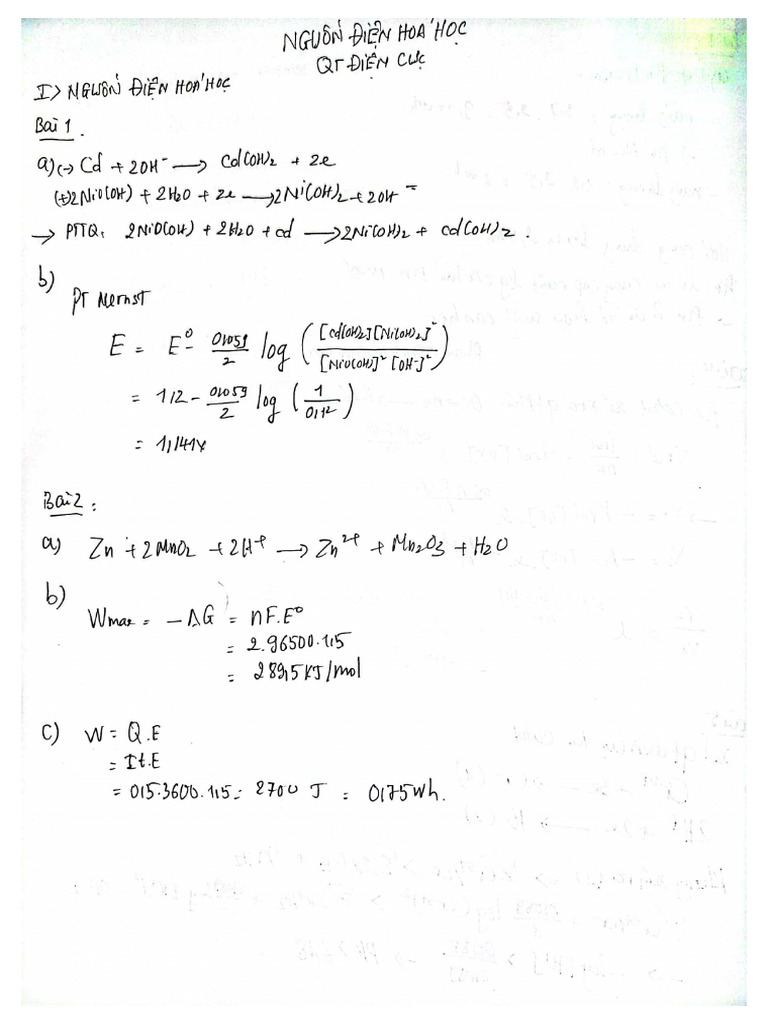 NGUỒN ĐIỆN HOÁ HỌC
QT ĐIỆN CỰC
I> NGUỒN ĐIỆN HOÁ HỌC
Bài 1.
a) (-) Cd + 2OH⁻ → Cd(OH)₂ + 2e
(+) 2NiO(OH) + 2H₂O + 2e → 2Ni(OH)₂ + 2OH⁻
→ PTTQ: 2NiO(OH) + 2H₂O + Cd → 2Ni(OH)₂ + Cd(OH)₂.
b)
PT Nernst
E = E⁰ - 0,059/2 log ([Cd(OH)₂][Ni(OH)₂]²/[NiO(OH)]²[OH⁻]²)
= 1,2 - 0,059/2 log (1/0,1²)
= 1,141V
Bài 2:
a) Zn + 2MnO₂ + 2H⁺ → Zn²⁺ + Mn₂O₃ + H₂O
b)
Wmax = -ΔG = nF.E⁰
= 2.96500.1,5
= 289,5 KJ/mol
c) W = Q.E
= It.E
= 0,5.3600.1,5 = 2700 J = 0,75Wh.